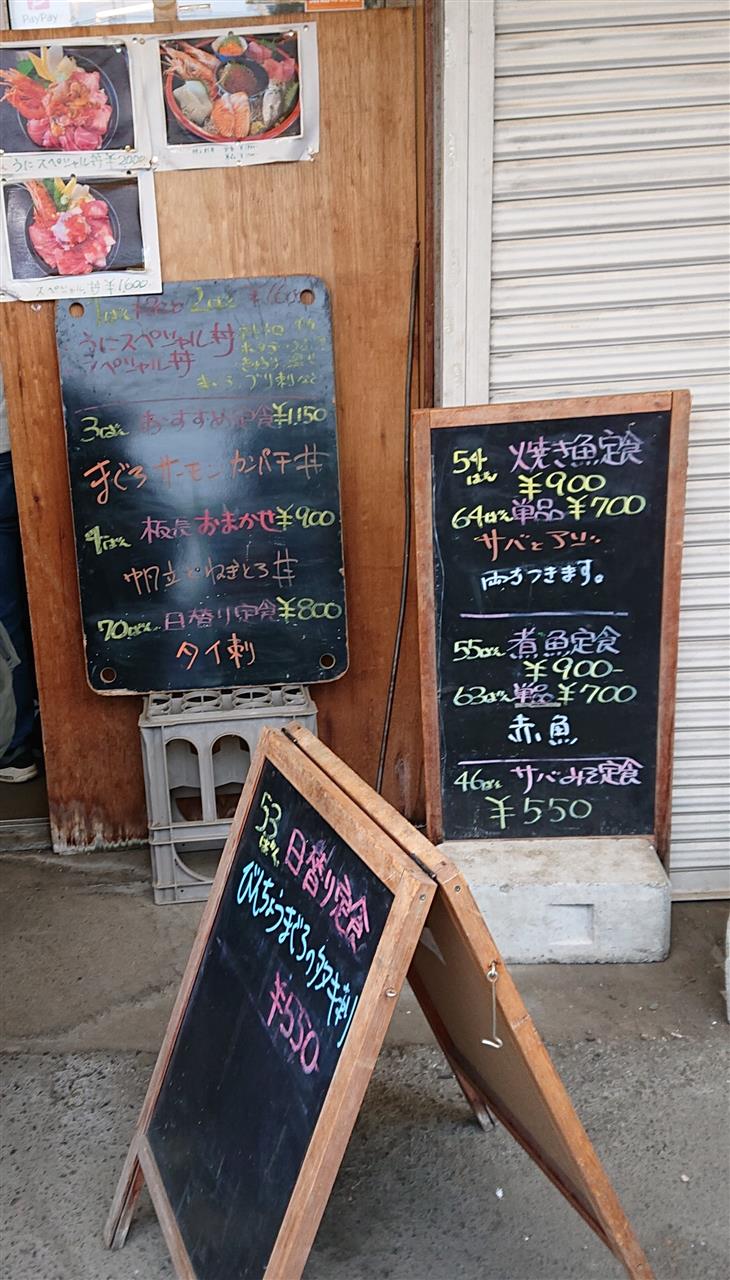 PayPay
うにスペシャル丼¥2000
スペシャル丼¥1,600
うにスペシャル丼
スペシャル丼
ブリ刺など
3ばん おすすめ定食¥1,150
まぐろ サーモン カンパチ丼
4ばん 板長おまかせ¥900
帆立とねぎとろ丼
70ばん 日替り定食¥800
タイ刺
54ばん 焼き魚定食
¥900
64ばん 単品¥700
サバとアジ
両方つきます。
55ばん 煮魚定食
¥900-
63ばん 単品¥700
赤魚
46ばん サバみそ定食
¥550
53ばん 日替り定食
びんちょうまぐろのタタキ刺
¥550